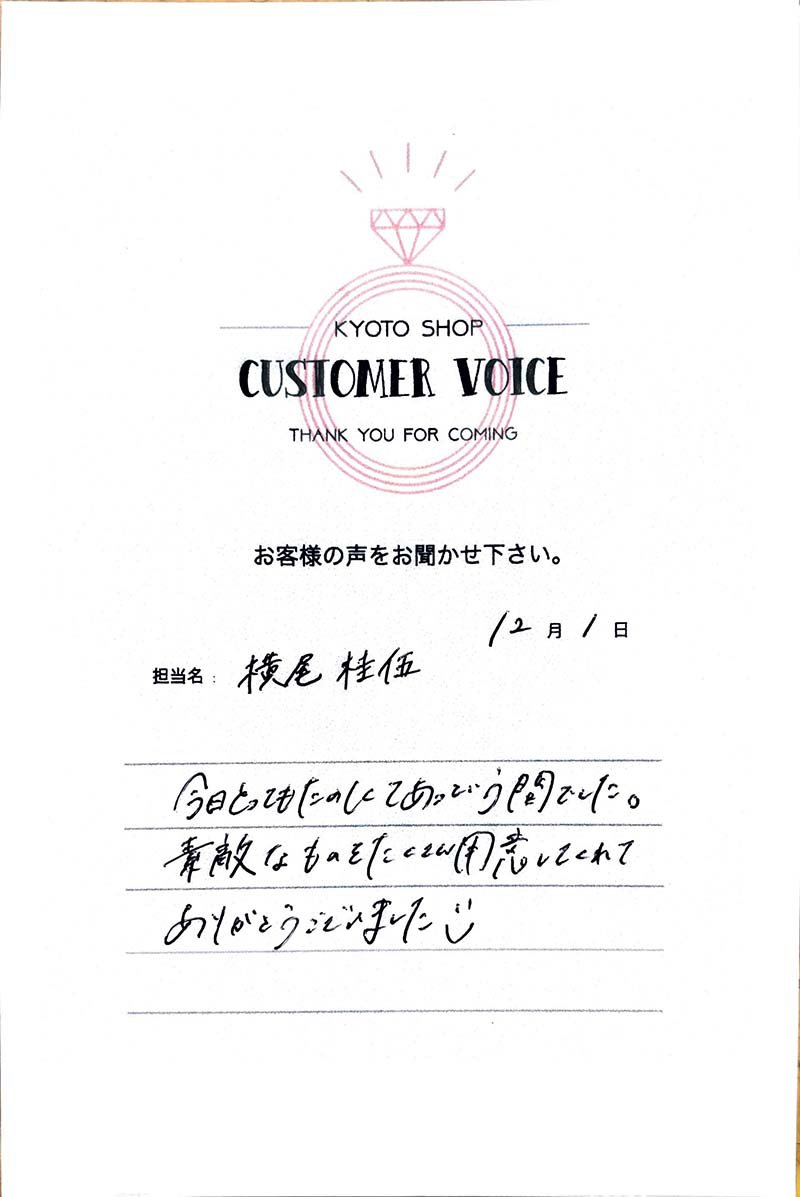 KYOTO SHOP
CUSTOMER VOICE
THANK YOU FOR COMING
お客様の声をお聞かせ下さい。
12月1日
担当名：横尾 桂伍
今日とってもたのしくてあっという間でした。
素敵なものをたくさん用意してくれて
ありがとうございました